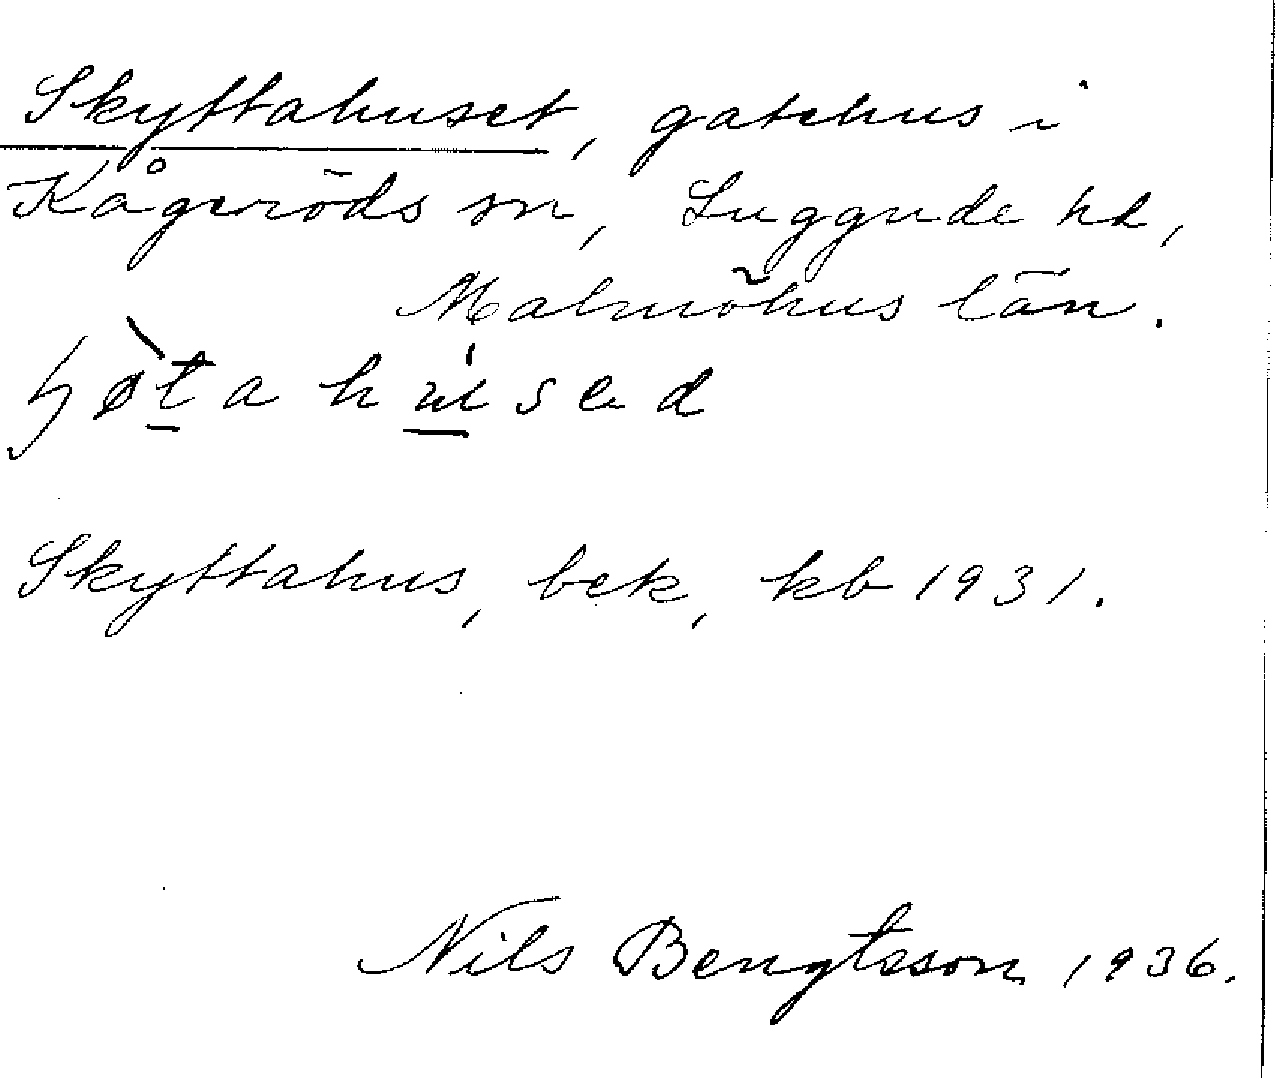 Skyttahuset, gatehus i
Kågeröds sn, Luggude hd,
Malmöhus län.
Skyttahus, bek, kb 1931.
Nils Bengtsson 1936.